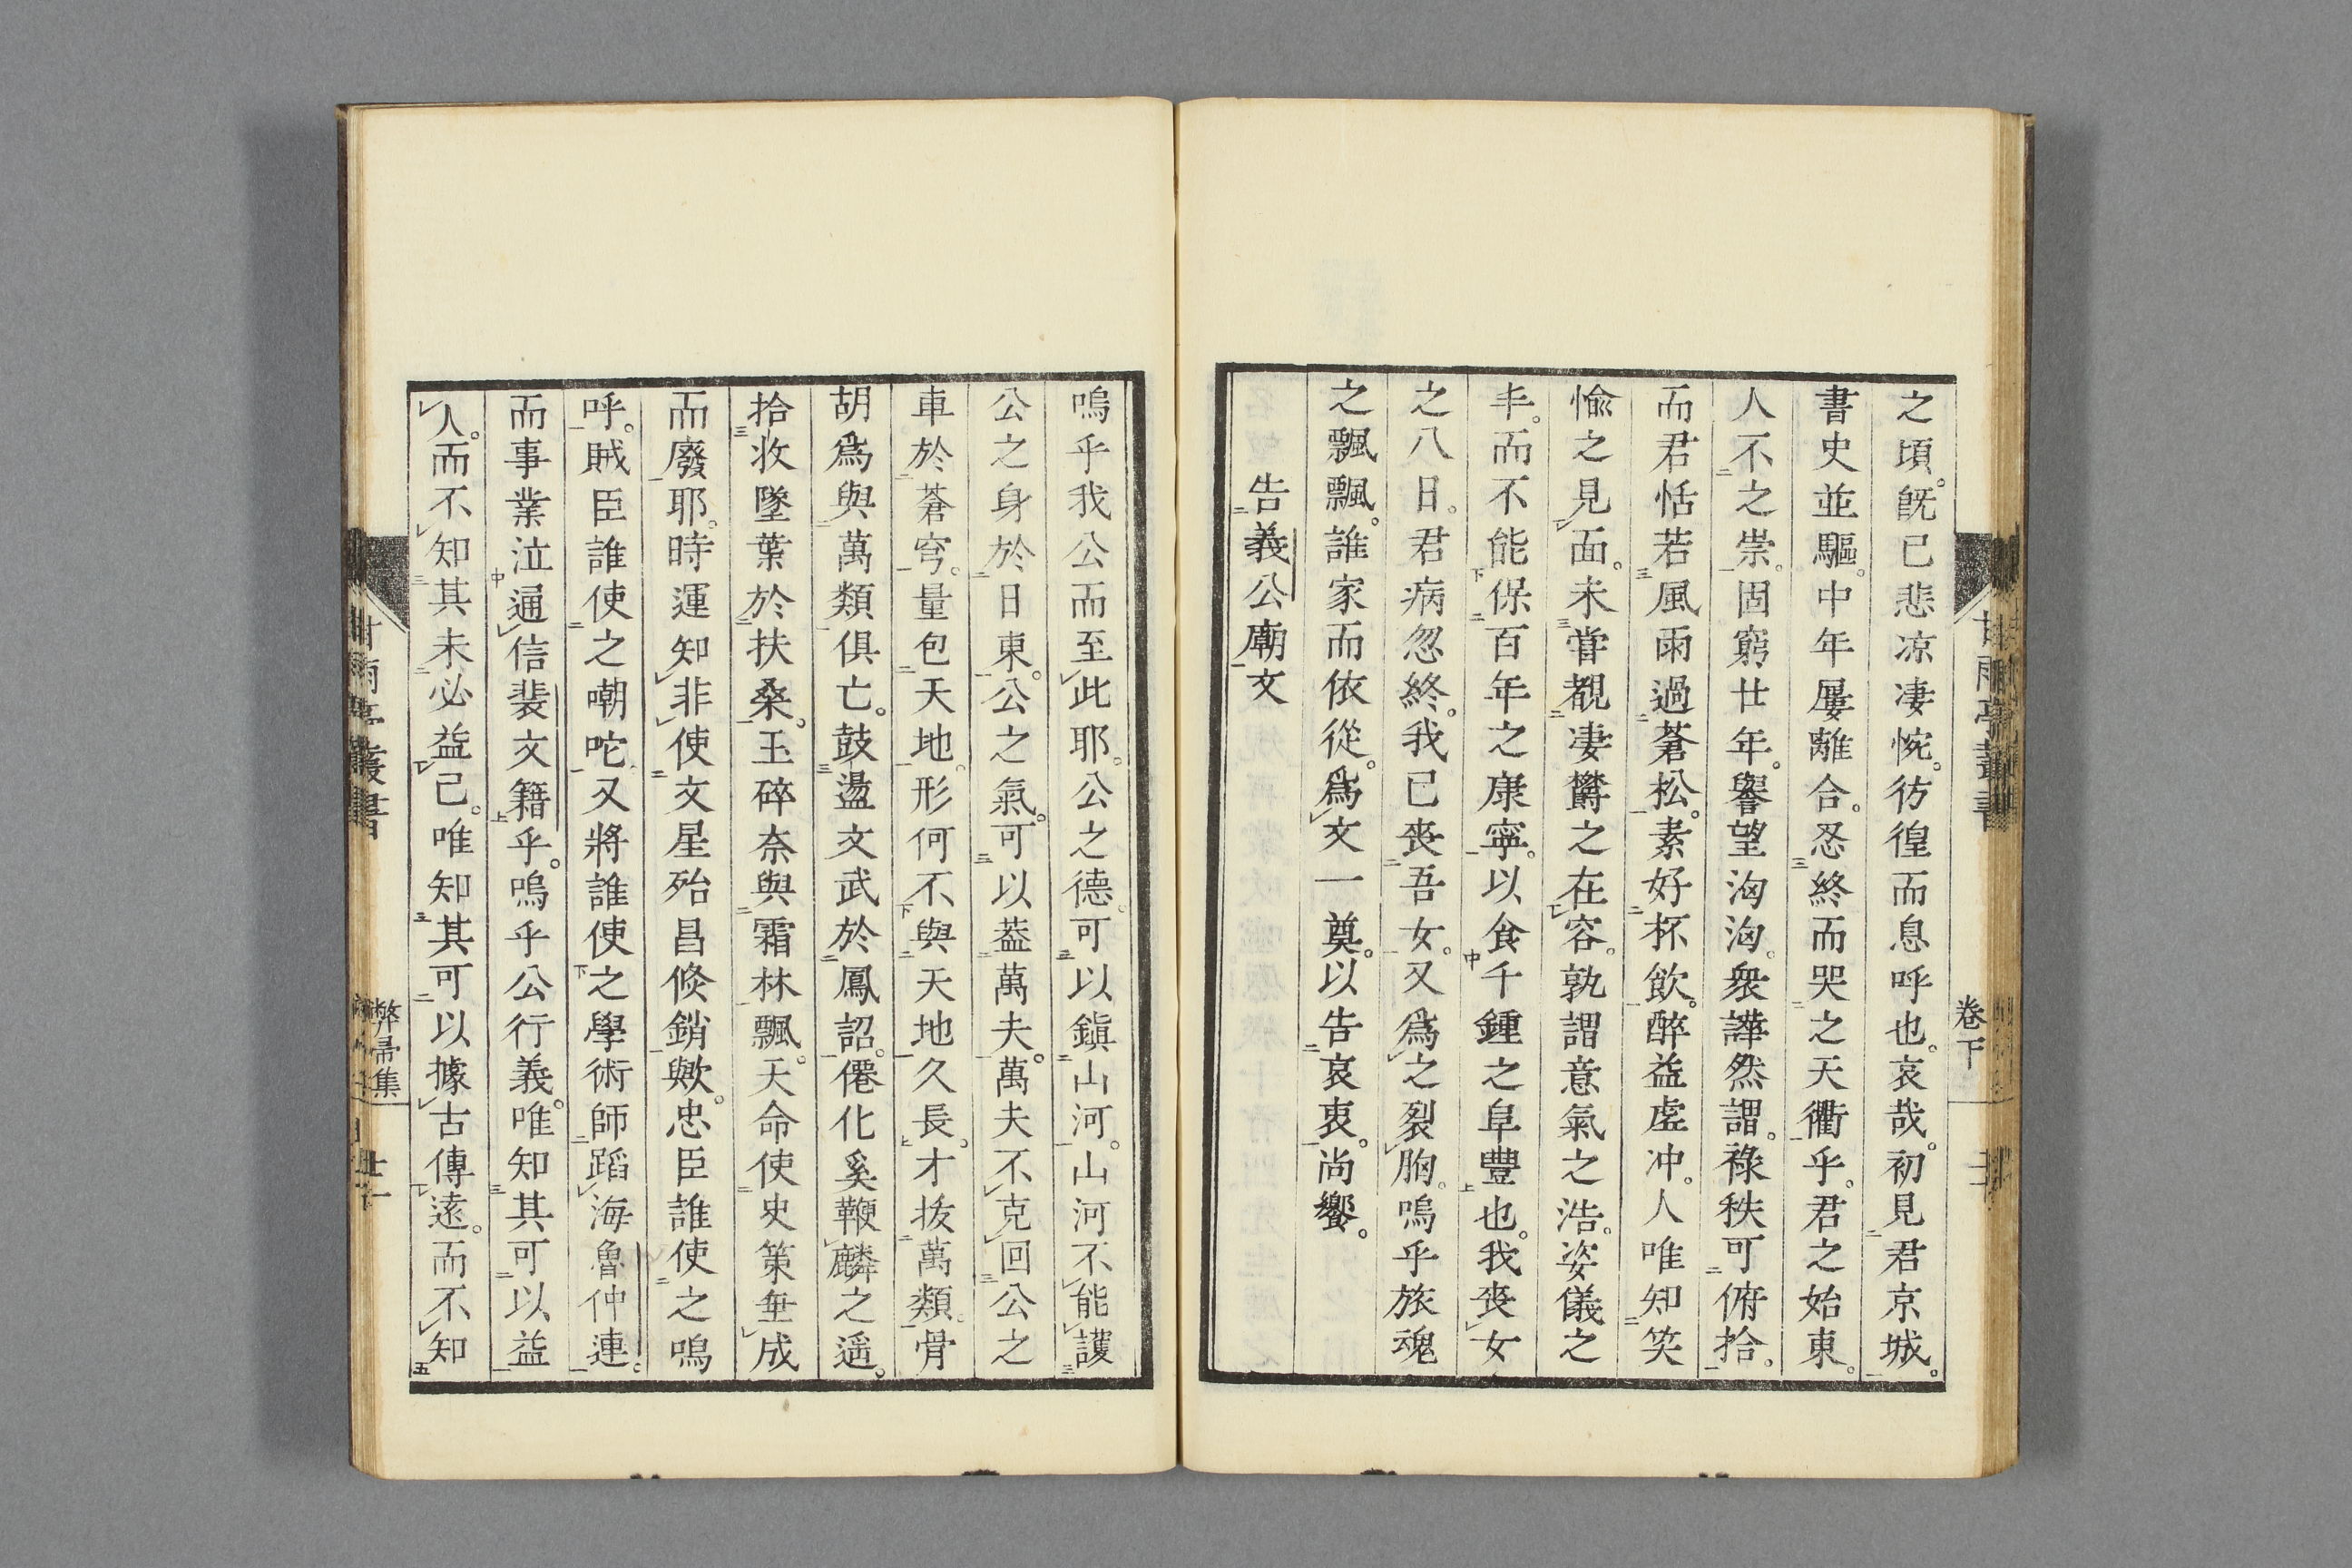 之頃。旣已悲凉凄惋。彷徨而息呼也。哀哉。初見君京城。
書史並驅。中年屢離合。忍終而哭之天衢乎。君之始東。
人不之祟。固窮廿年。譽望洶洶。衆譁然謂。祿秩可俯拾。
而君恬若風雨過蒼松。素好杯飲。醉益虛冲。人唯知笑
愉之見面。未嘗覩凄欝之在容。孰謂意氣之浩。姿儀之
丰。而不能保百年之康寧。以食千鍾之阜豐也。我喪女
之八日。君病忽終。我已喪吾女。又爲之裂胸。嗚乎旅魂
之飄飄。誰家而依從。爲文一奠。以告哀衷。尚饗。
告義公廟文
卷下
嗚乎我公而至此耶。公之德。可以鎭山河。山河不能護
公之身於日東。公之氣。可以葢萬夫。萬夫不克回公之
車於蒼穹。量包天地。形何不與天地久長。才拔萬類。骨
胡爲與萬類俱亡。鼓盪文武於鳳詔。僊化奚鞭麟之遥。
拾收墜葉於扶桑。玉碎奈與霜林飄。天命使史策垂成
而廢耶。時運知非使文星殆昌倏銷歟。忠臣誰使之嗚
呼。賊臣誰使之嘲咜。又將誰使之學術師蹈海魯仲連。
而事業泣通信裴文籍乎。嗚乎公行義。唯知其可以益
人。而不知其未必益己。唯知其可以據古傳遠。而不知
甘雨亭叢書
弊帚集